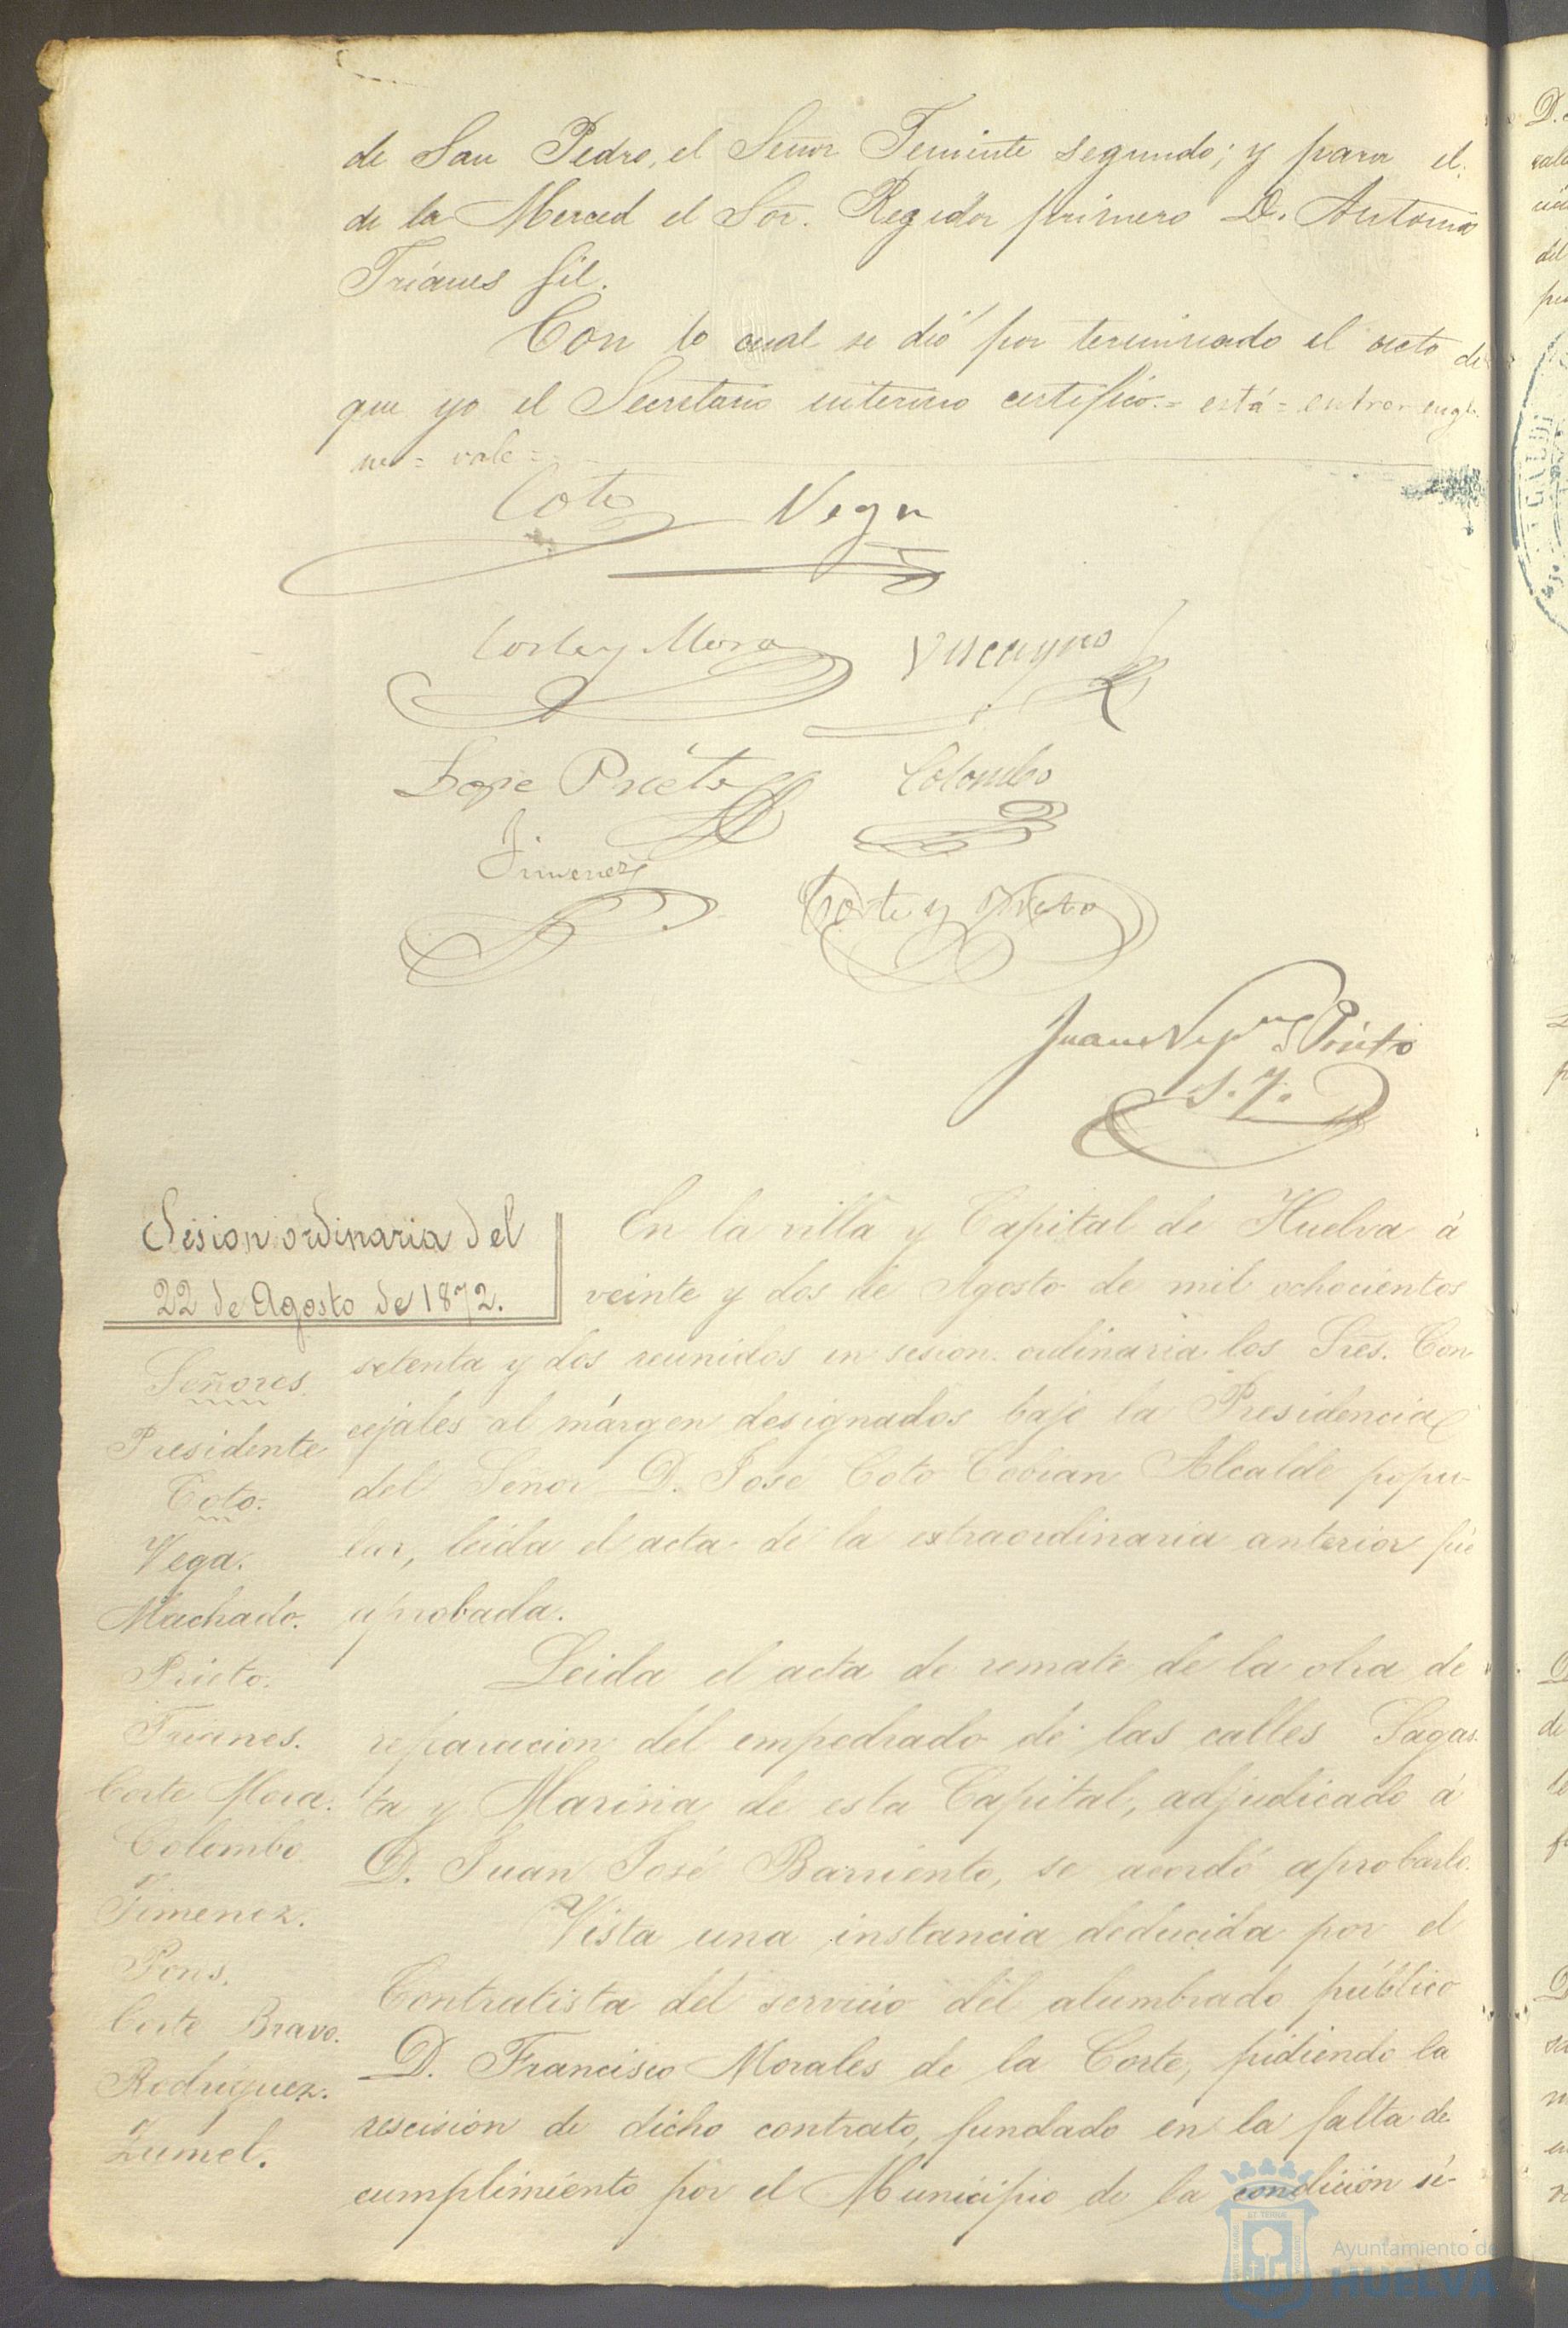 de San Pedro, el Señor Teniente segundo; y para el
de la Merced el Sor. Regidor primero D. Antonio
Trianes Gil.
Con lo cual se dió por terminado el acto de
que yo el Secretario interino certifico.= está = entrerenglo
nes = vale =
Coto Vega
Corte y Mora Vizcayno
Lope Prieto Colombo
Jimenez
Corte y Prieto
Juan Nepno Prieto
S. I.
Sesion ordinaria del
22 de Agosto de 1872.
Señores.
Presidente
Coto.
Vega.
Machado.
Prieto.
Trianes.
Corte Mora.
Colombo
Jimenez.
Pons.
Corte Bravo.
Rodriguez.
Zumel.
En la villa y Capital de Huelva á
veinte y dos de Agosto de mil ochocientos
setenta y dos reunidos en sesion ordinaria los Sres. Con-
cejales al márgen designados bajo la Presidencia
del Señor D. José Coto Cobian Alcalde popu-
lar, leida el acta de la extraordinaria anterior fué
aprobada.
Leida el acta de remate de la obra de
reparacion del empedrado de las calles Sagas-
ta y Marina de esta Capital, adjudicado á
D. Juan José Barriento, se acordó aprobarlo.
Vista una instancia deducida por el
Contratista del servicio del alumbrado público
D. Francisco Morales de la Corte, pidiendo la
rescision de dicho contrato, fundado en la falta de
cumplimiento por el Municipio de la condicion si-
Ayuntamiento de
HUELVA